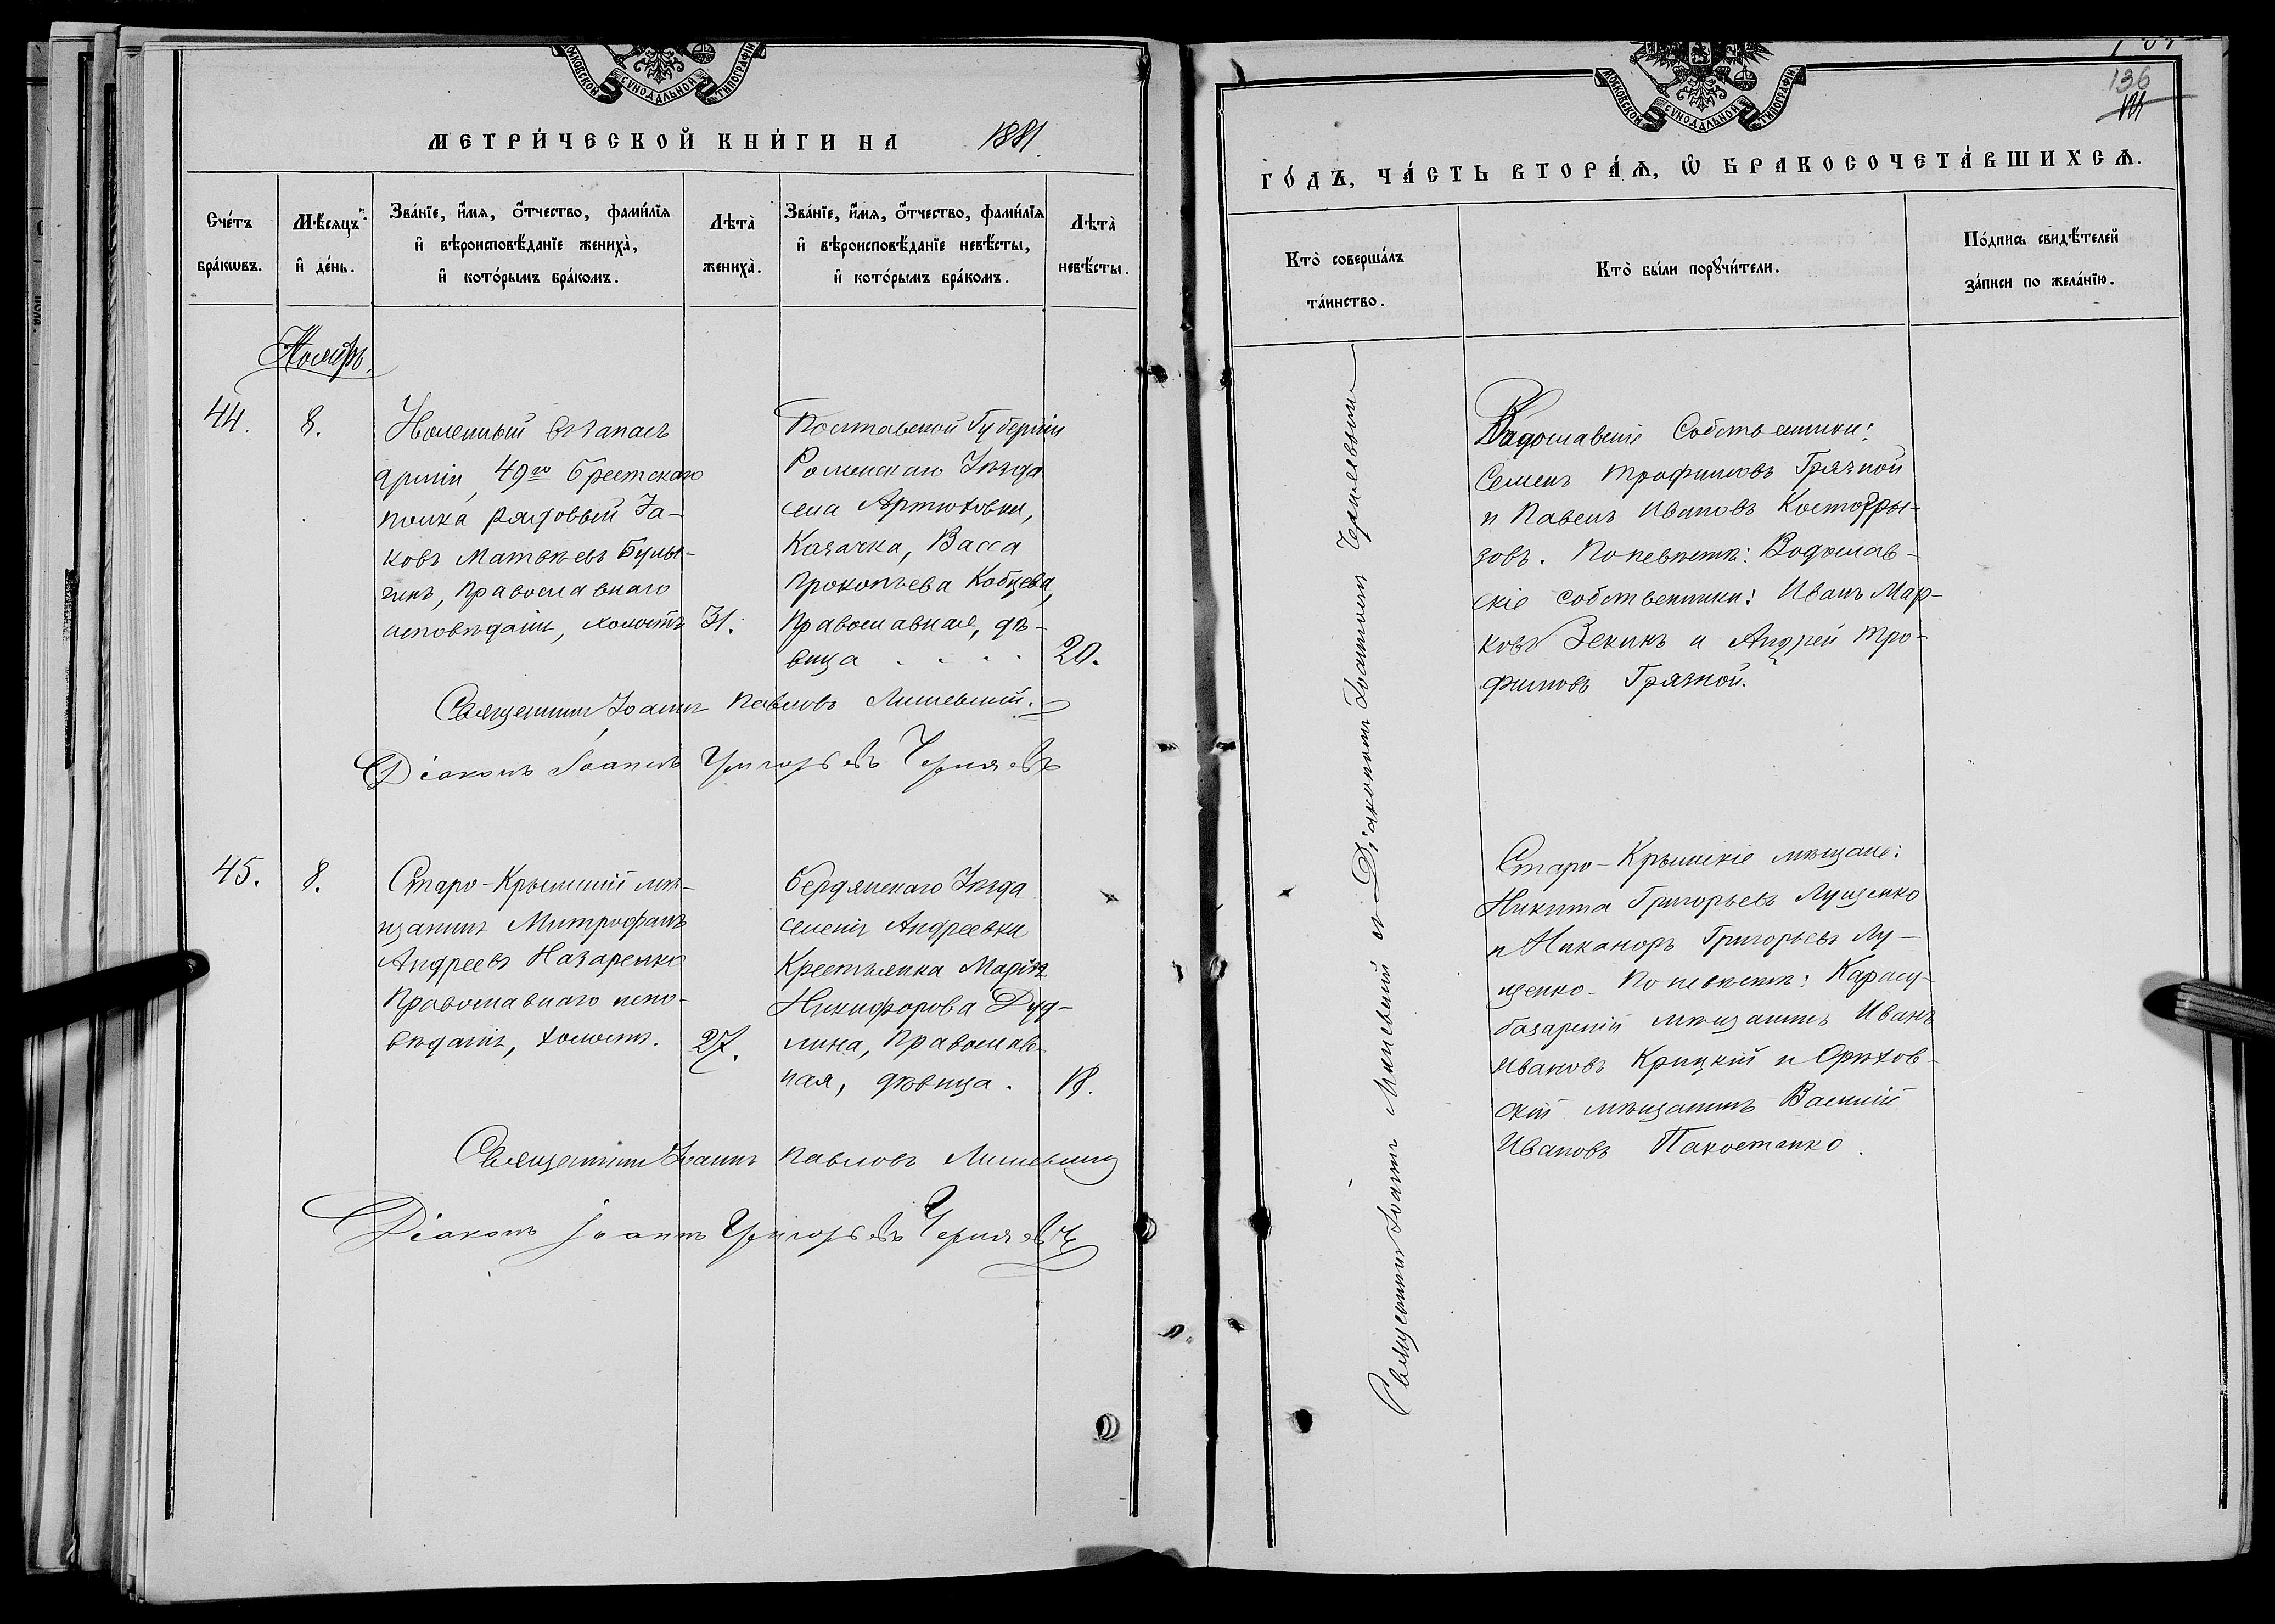 МОСКОВСКОЙ СѴНОДАЛЬНОЙ ТИПОГРАФІИ
МЕТРИ́ЧЕСКОЙ КНИ́ГИ НА 1881.
Сче́тъ бра́кѡвъ.
Мѣ́сяцъ и҆ де́нь.
Зва́нїе, и҆́мя, ѻ҆́тчество, фами́лїя
и҆ вѣроисповѣ́данїе жениха̀,
и҆ кото́рымъ бра́комъ.
Лѣта̀ жениха̀.
Зва́нїе, и҆́мя, ѻ҆́тчество, фами́лїя
и҆ вѣроисповѣ́данїе невѣ́сты,
и҆ кото́рымъ бра́комъ.
Лѣта̀ невѣ́сты.
Ноябрь.
44.
8.
Уволенный въ запасъ
арміи, 49го Брестскаго
полка рядовый Іа-
ковъ Матвѣевъ
православнаго
исповѣданія, холостъ
31.
Полтавской Губерніи
Роменскаго Уѣзда
села Артюховки,
Козачка, Васса
Прокопьева Кобцева,
Православная, дѣ-
вица . . . .
20.
Священникъ Іоаннъ Павловъ
Діаконъ Іоаннъ Григорьевъ Черняевъ
45.
8.
Старо-Крымскій мѣ-
щанинъ Митрофанъ
Андреевъ Назаренко
Православнаго испо-
вѣданія, холостъ.
27.
Бердянскаго Уѣзда
селенія Андреевки
Крестьянка Марія
Никифорова Дуд-
лина, Православ-
ная, дѣвица.
18.
Священникъ Іоаннъ Павловъ
Діаконъ Іоаннъ Григорьевъ Черняевъ
МОСКОВСКОЙ СѴНОДАЛЬНОЙ ТИПОГРАФІИ
136
ГО́ДЪ, ЧА́СТЬ ВТОРА́Ѧ, Ѡ҆ БРАКОСОЧЕТА́ВШИХСѦ.
Кто̀ соверша́лъ
та́инство.
Кто̀ бы́ли порꙋчи́тели.
По́дпись свидѣ́телей
за́писи по жела́нїю.
Священникъ Іоаннъ съ Діакономъ Іоанномъ Черняевымъ
Собственники:
Семенъ Трофимовъ Грязной
и Павелъ Ивановъ Костогры-
зовъ. По невѣстѣ: Водяслав-
скіе собственники: Иванъ Мар-
ковъ Зекинъ и Андрей Тро-
фимовъ Грязной.
Старо-Крымскіе мѣщане:
Никита Григорьевъ Луценко
и Никаноръ Григорьевъ Лу-
ценко. По невѣстѣ: Карасу-
базарскій мѣщанинъ Иванъ
Ивановъ Крицкій и Орѣхов-
скій мѣщанинъ Василій
Ивановъ Пакостенко.